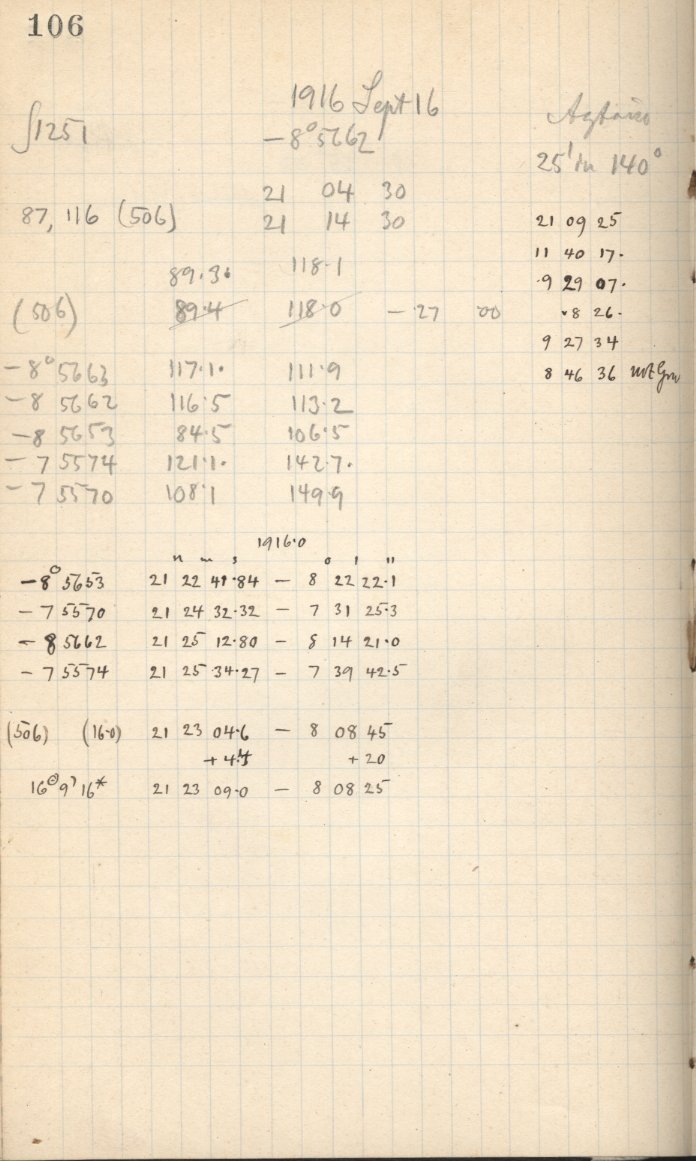 106
1916 Sept 16
∫1251
-8° 5662
25' in 140°
21 04 30
87, 116 (506)
21 14 30
21 09 25
11 40 17.
9 29 07.
8 26.
9 27 34
8 46 36 not Gm
89.3. 118.1
(506) 89.4 118.0 - 27 00
-8° 5663 117.1. 111.9
-8 5662 116.5 113.2
-8 5653 84.5 106.5
-7 5574 121.1. 142.7.
-7 5570 108.1 149.9
1916.0
h m s ° ' "
-8° 5653 21 22 41.84 - 8 22 22.1
-7 5570 21 24 32.32 - 7 31 25.3
-8 5662 21 25 12.80 - 8 14 21.0
-7 5574 21 25 34.27 - 7 39 42.5
(506) (16.0) 21 23 04.6 - 8 08 45
+4.4 +20
21 23 09.0 - 8 08 25